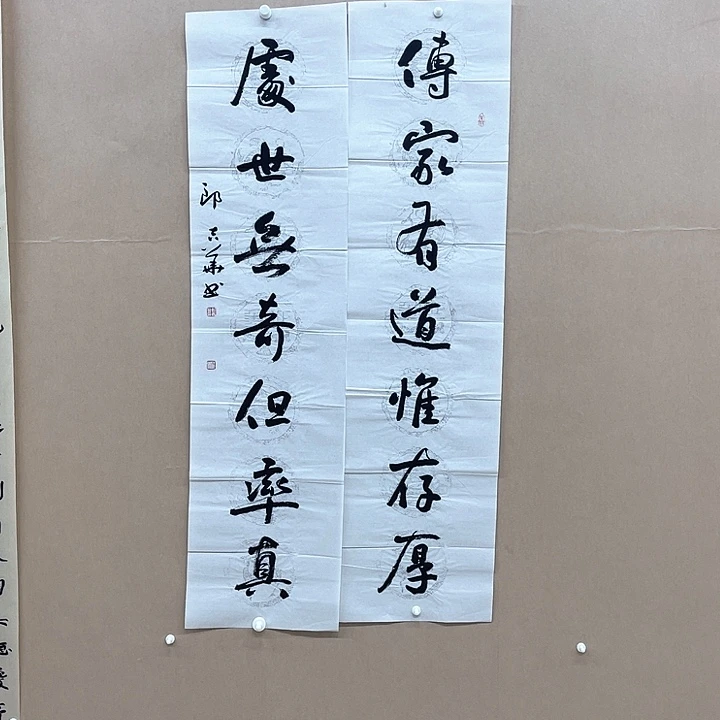 傳家有道惟存厚
處世無奇但率真
郎志華書